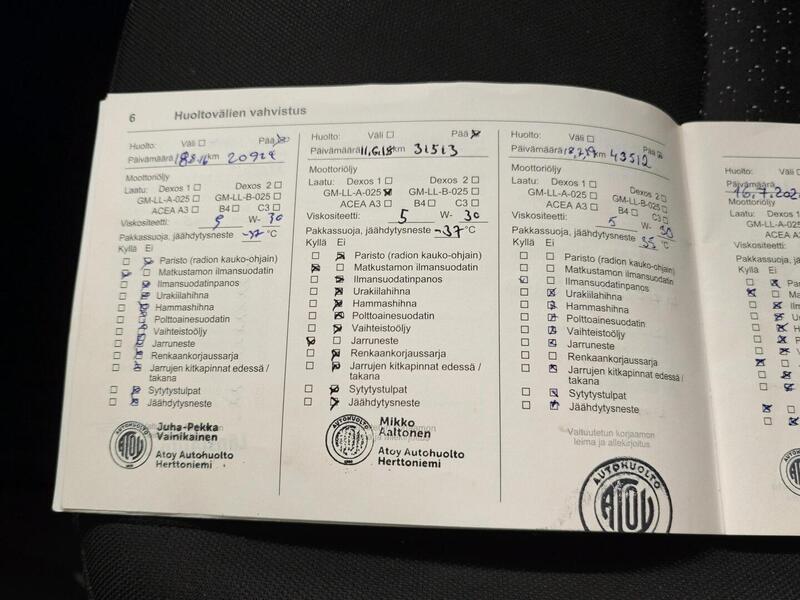 6 Huoltovälien vahvistus
Huolto: Väli ☐ Pää ☒
Päivämäärä 18.8.16 km 20928
Moottoriöljy
Laatu: Dexos 1 ☐ Dexos 2 ☐
GM-LL-A-025 ☐ GM-LL-B-025 ☐
ACEA A3 ☐ B4 ☐ C3 ☐
Viskositeetti: 5 W- 30
Pakkassuoja, jäähdytysneste -37 °C
Kyllä Ei
Paristo (radion kauko-ohjain)
Matkustamon ilmansuodatin
Ilmansuodatinpanos
Urakiilahihna
Hammashihna
Polttoainesuodatin
Vaihteistoöljy
Jarruneste
Renkaankorjaussarja
Jarrujen kitkapinnat edessä /
takana
Sytytystulpat
Jäähdytysneste
Juha-Pekka
Vainikainen
Atoy Autohuolto
Herttoniemi
AUTOHUOLTO
ATOY
Huolto: Väli ☐ Pää ☒
Päivämäärä 11.6.18 km 31513
Moottoriöljy
Laatu: Dexos 1 ☐ Dexos 2 ☐
GM-LL-A-025 ☒ GM-LL-B-025 ☐
ACEA A3 ☐ B4 ☐ C3 ☐
Viskositeetti: 5 W- 30
Pakkassuoja, jäähdytysneste -37 °C
Kyllä Ei
Paristo (radion kauko-ohjain)
Matkustamon ilmansuodatin
Ilmansuodatinpanos
Urakiilahihna
Hammashihna
Polttoainesuodatin
Vaihteistoöljy
Jarruneste
Renkaankorjaussarja
Jarrujen kitkapinnat edessä /
takana
Sytytystulpat
Jäähdytysneste
Mikko
Aaltonen
Atoy Autohuolto
Herttoniemi
Huolto: Väli ☐ Pää ☒
Päivämäärä 18.7.19 km 43512
Moottoriöljy
Laatu: Dexos 1 ☐ Dexos 2 ☐
GM-LL-A-025 ☐ GM-LL-B-025 ☐
ACEA A3 ☐ B4 ☐ C3 ☐
Viskositeetti: 5 W- 30
Pakkassuoja, jäähdytysneste 35 °C
Kyllä Ei
Paristo (radion kauko-ohjain)
Matkustamon ilmansuodatin
Ilmansuodatinpanos
Urakiilahihna
Hammashihna
Polttoainesuodatin
Vaihteistoöljy
Jarruneste
Renkaankorjaussarja
Jarrujen kitkapinnat edessä /
takana
Sytytystulpat
Jäähdytysneste
Valtuutetun korjaamon
leima ja allekirjoitus
AUTOHUOLTO
ATOY
Huolto: Väli ☐
Päivämäärä
16.7.202
Moottoriöljy
Laatu: Dexos 1
GM-LL-A-025
ACEA A3
Viskositeetti:
Pakkassuoja, jää
Kyllä Ei